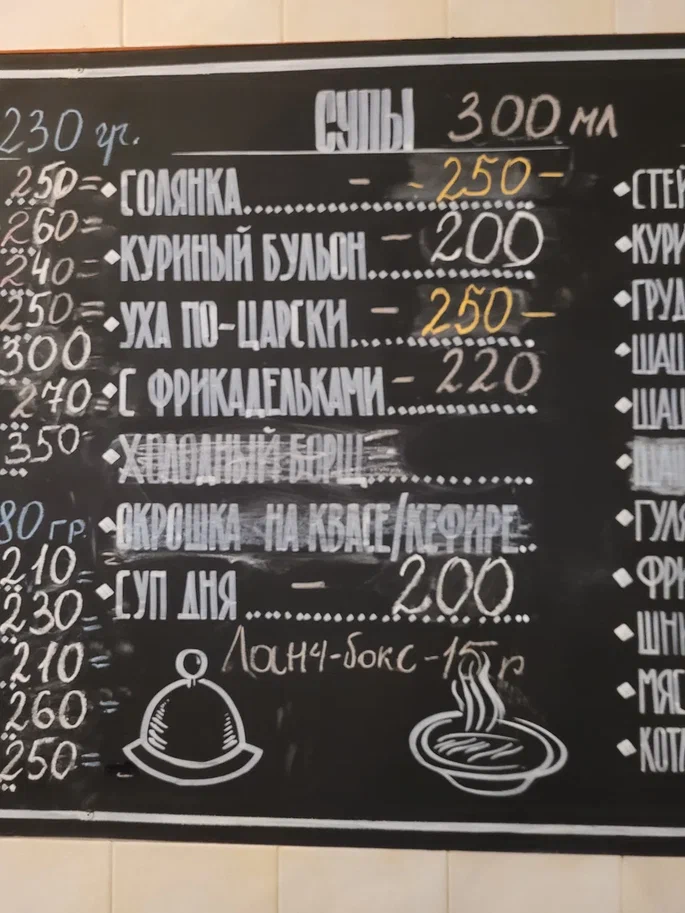 230 гр.
250=
260=
240=
250=
300
270=
350-
80 гр.
210=
230=
210=
260=
250=
СУПЫ 300 мл
СОЛЯНКА.................... - - 250 -
КУРИНЫЙ БУЛЬОН............... - 200
УХА ПО-ЦАРСКИ................. - 250 -
С ФРИКАДЕЛЬКАМИ............. - 220
ХОЛОДНЫЙ БОРЩ...............
ОКРОШКА НА КВАСЕ/КЕФИРЕ..
СУП ДНЯ .................... - 200
Ланч-бокс-15 г
СТЕЙ
КУРИ
ГРУД
ШАШ
ШАШ
ГУЛЯ
ФРИ
ШНИ
МЯС
КОТЛ